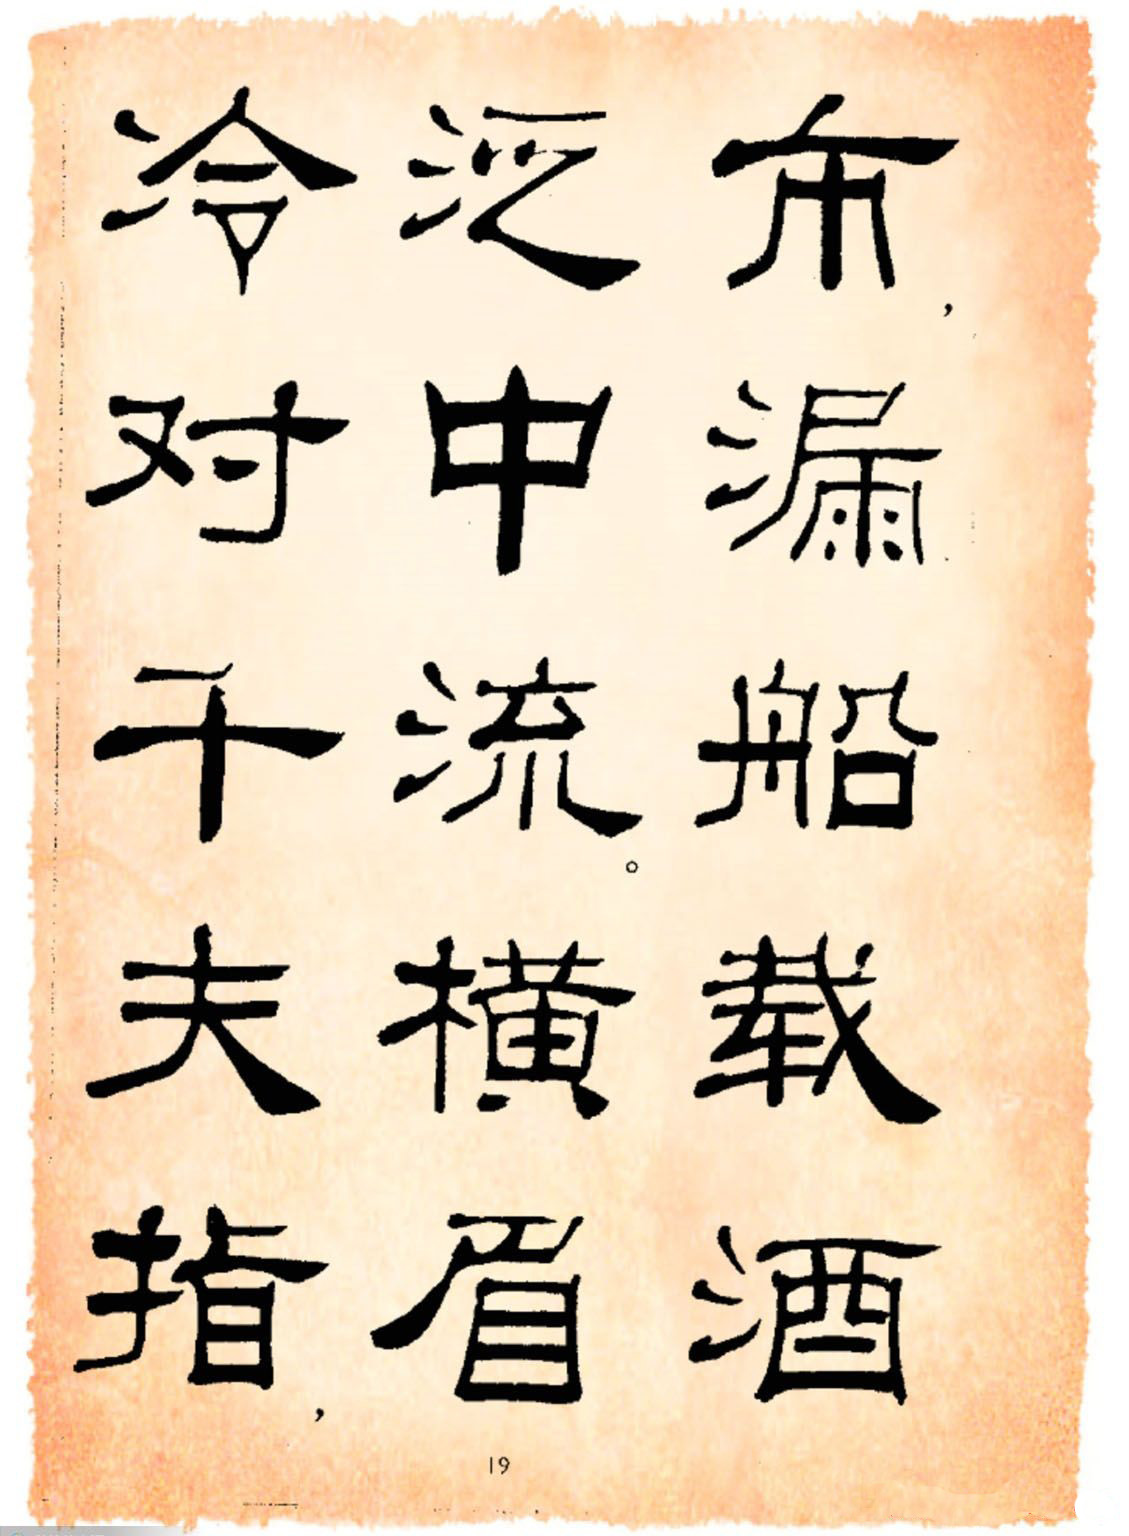 市，漏船载酒
泛中流。横眉
冷对千夫指，
19